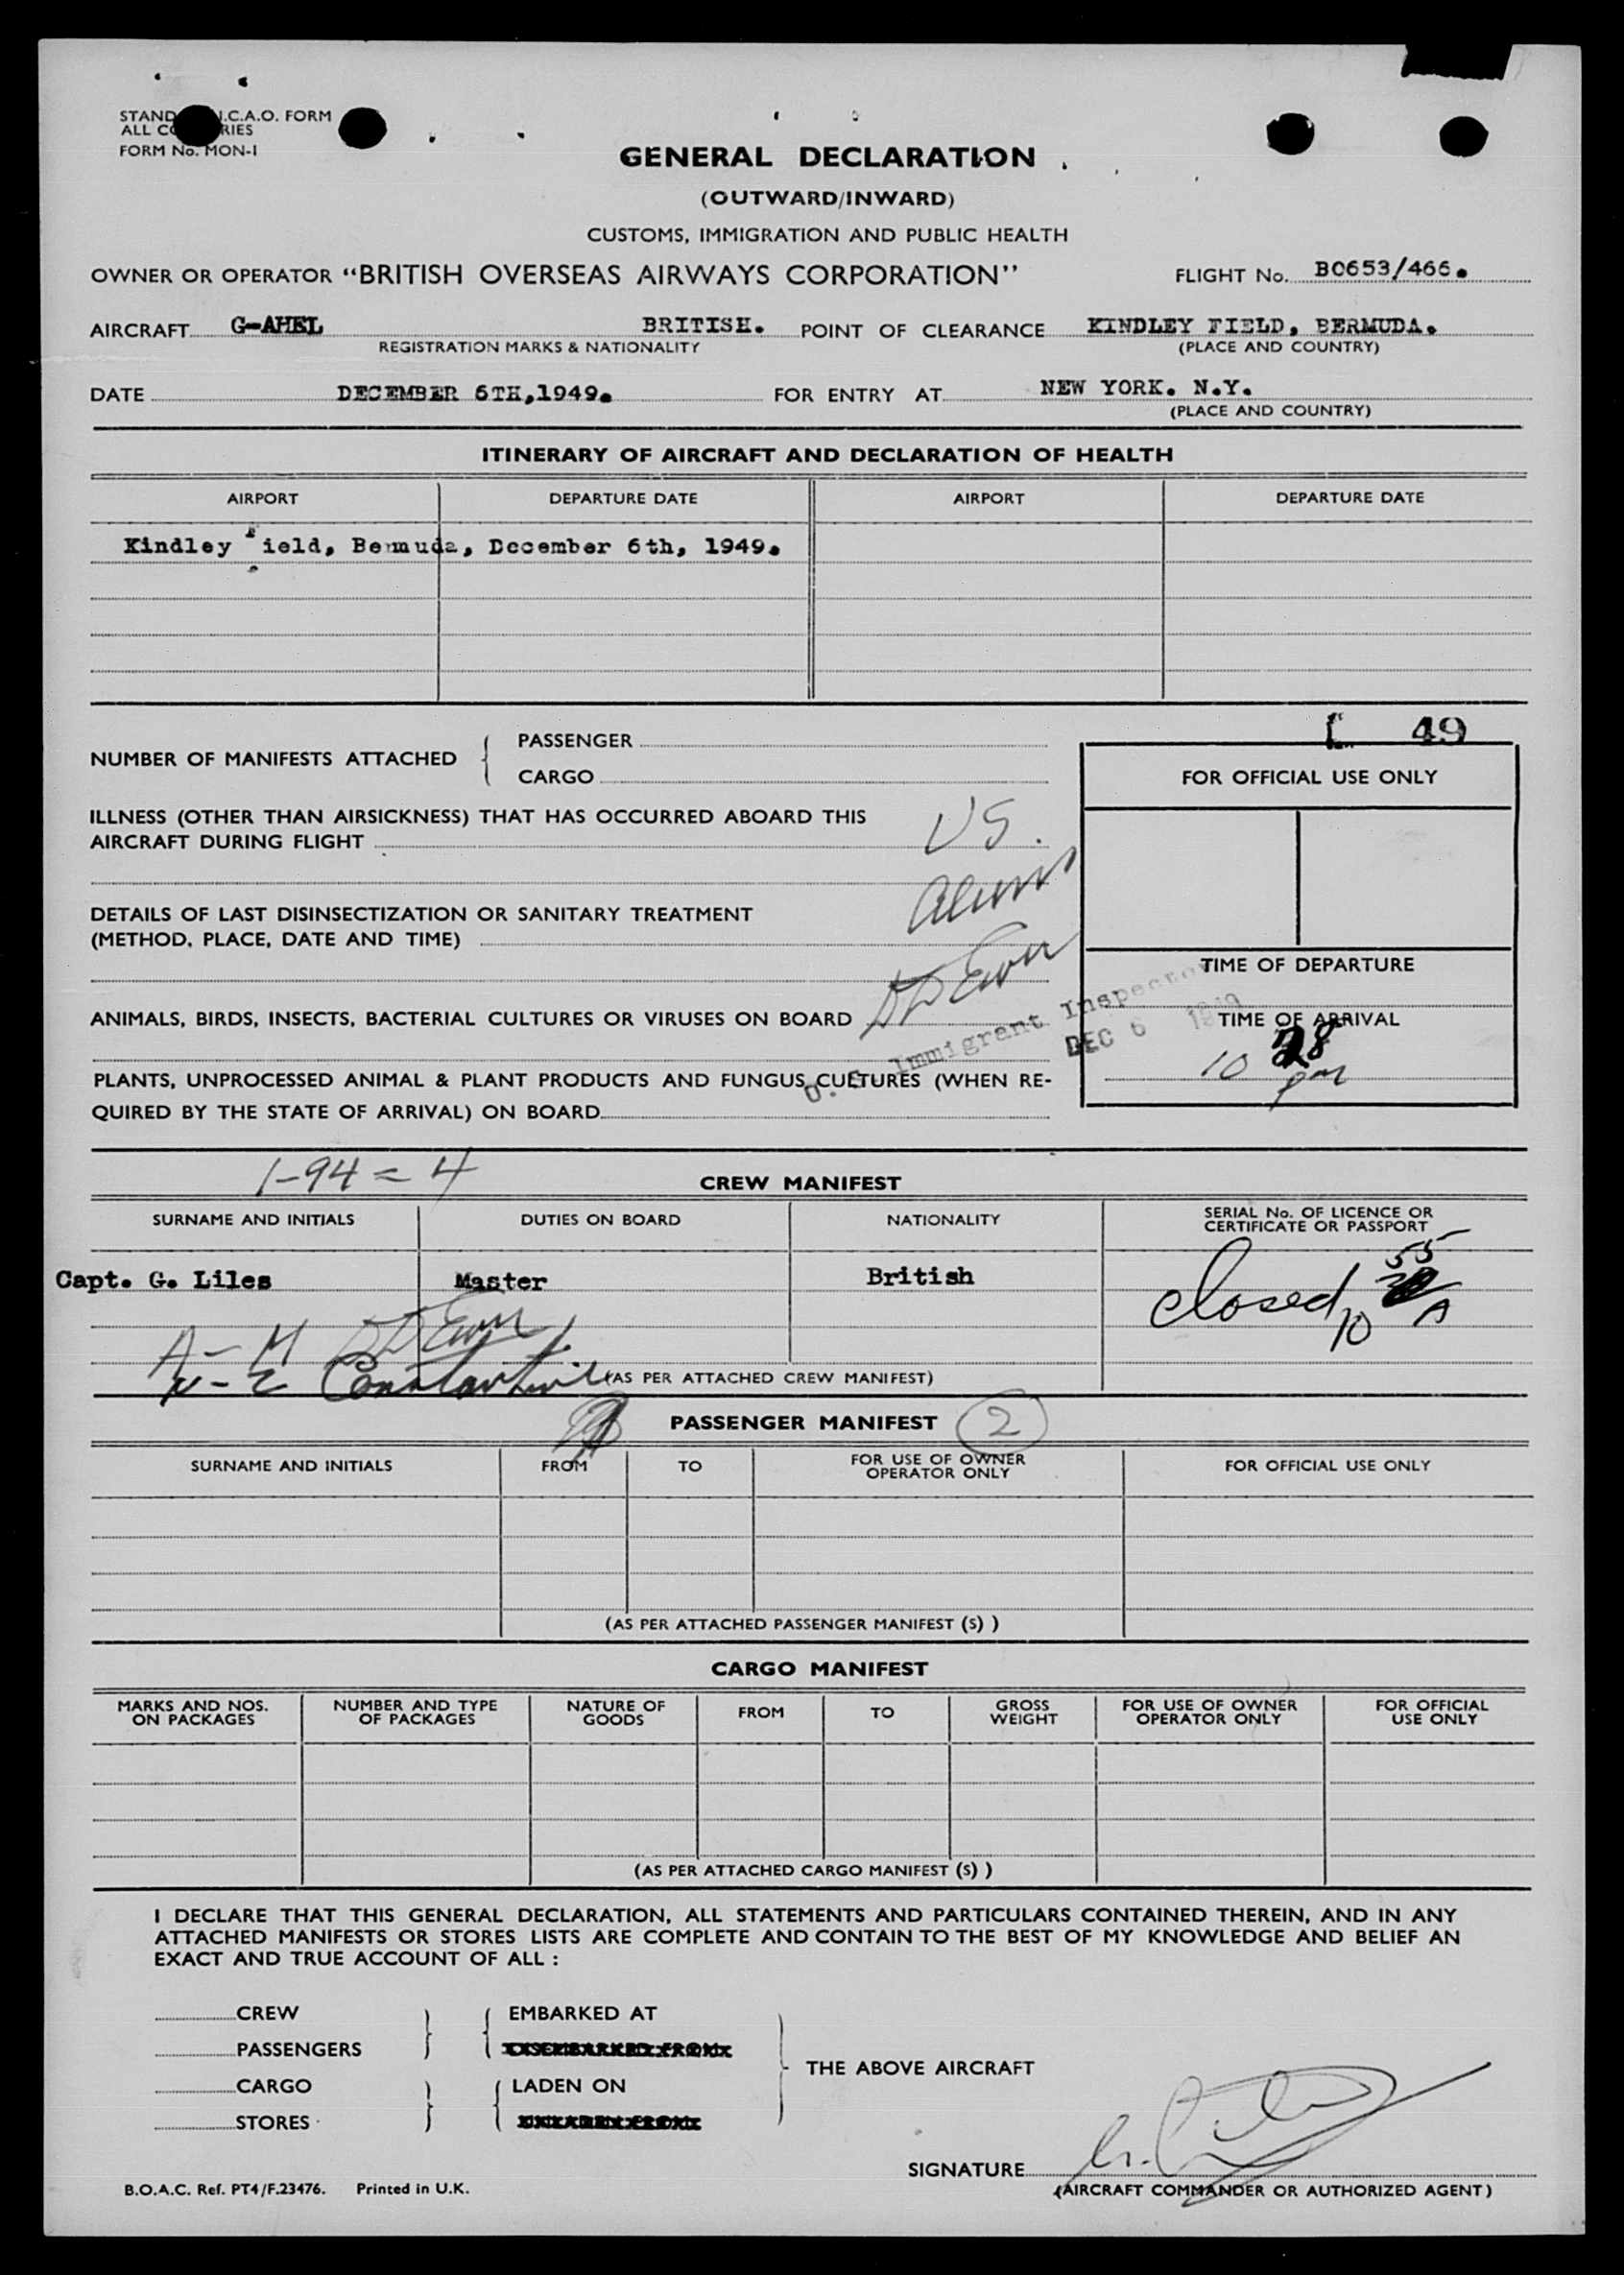 I.C.A.O. FORM
FORM No. MON-1
GENERAL DECLARATION
(OUTWARD/INWARD)
CUSTOMS, IMMIGRATION AND PUBLIC HEALTH
OWNER OR OPERATOR "BRITISH OVERSEAS AIRWAYS CORPORATION" FLIGHT No. BO653/466.
AIRCRAFT G-AHEL BRITISH. POINT OF CLEARANCE KINDLEY FIELD, BERMUDA.
REGISTRATION MARKS & NATIONALITY (PLACE AND COUNTRY)
DATE DECEMBER 6TH,1949. FOR ENTRY AT NEW YORK. N.Y.
(PLACE AND COUNTRY)
ITINERARY OF AIRCRAFT AND DECLARATION OF HEALTH
AIRPORT DEPARTURE DATE AIRPORT DEPARTURE DATE
Kindley Field, Bermuda, December 6th, 1949.
49
NUMBER OF MANIFESTS ATTACHED { PASSENGER
CARGO
FOR OFFICIAL USE ONLY
ILLNESS (OTHER THAN AIRSICKNESS) THAT HAS OCCURRED ABOARD THIS
AIRCRAFT DURING FLIGHT
US.
DETAILS OF LAST DISINSECTIZATION OR SANITARY TREATMENT
(METHOD, PLACE, DATE AND TIME)
TIME OF DEPARTURE
ANIMALS, BIRDS, INSECTS, BACTERIAL CULTURES OR VIRUSES ON BOARD
U.S. Immigrant Inspector
DEC 6 1949
TIME OF ARRIVAL
10 28 pm
PLANTS, UNPROCESSED ANIMAL & PLANT PRODUCTS AND FUNGUS CULTURES (WHEN RE-
QUIRED BY THE STATE OF ARRIVAL) ON BOARD
1-94 = 4
CREW MANIFEST
SURNAME AND INITIALS DUTIES ON BOARD NATIONALITY SERIAL No. OF LICENCE OR
CERTIFICATE OR PASSPORT
Capt. G. Liles Master British
closed 10 55 A
A - M
N - Z
(AS PER ATTACHED CREW MANIFEST)
PASSENGER MANIFEST 2
SURNAME AND INITIALS FROM TO FOR USE OF OWNER
OPERATOR ONLY FOR OFFICIAL USE ONLY
(AS PER ATTACHED PASSENGER MANIFEST (S) )
CARGO MANIFEST
MARKS AND NOS.
ON PACKAGES NUMBER AND TYPE
OF PACKAGES NATURE OF
GOODS FROM TO GROSS
WEIGHT FOR USE OF OWNER
OPERATOR ONLY FOR OFFICIAL
USE ONLY
(AS PER ATTACHED CARGO MANIFEST (S) )
I DECLARE THAT THIS GENERAL DECLARATION, ALL STATEMENTS AND PARTICULARS CONTAINED THEREIN, AND IN ANY
ATTACHED MANIFESTS OR STORES LISTS ARE COMPLETE AND CONTAIN TO THE BEST OF MY KNOWLEDGE AND BELIEF AN
EXACT AND TRUE ACCOUNT OF ALL :
CREW EMBARKED AT
PASSENGERS
THE ABOVE AIRCRAFT
CARGO LADEN ON
STORES
SIGNATURE
(AIRCRAFT COMMANDER OR AUTHORIZED AGENT)
B.O.A.C. Ref. PT4/F.23476. Printed in U.K.